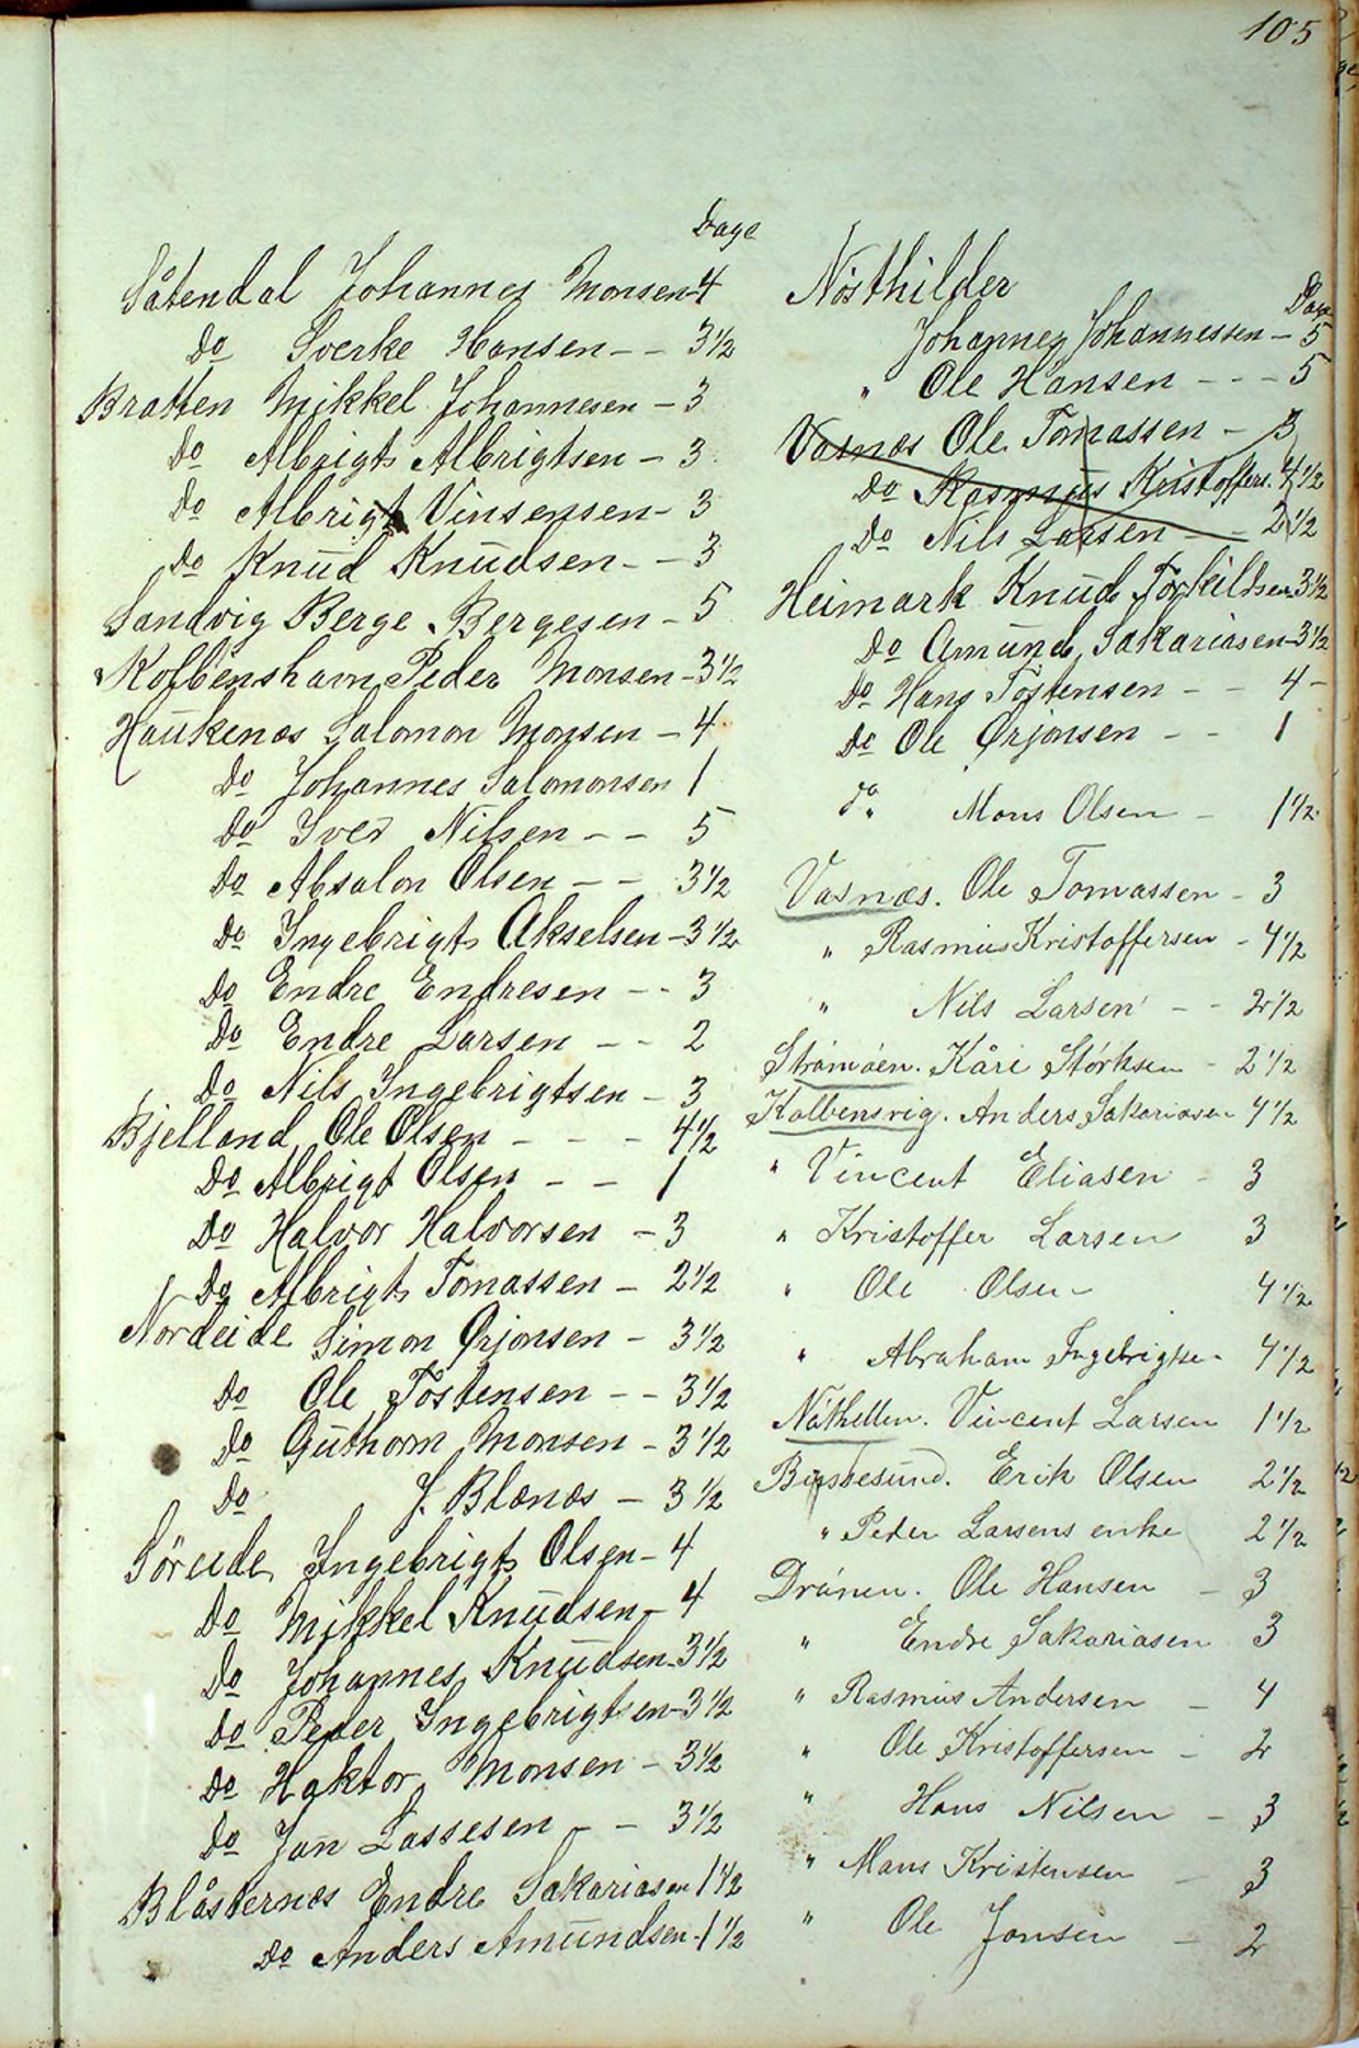 105
Dage
Såtendal Johannes Monsen - 4
Do Sverke Hansen - - 3 1/2
Bratten Mikkel Johannesen - 3
Do Albrigt Albrigtsen - 3
Do Albrigt Vinsensen - 3
Do Knud Knudsen - - 3
Sandvig Berge Bergesen - 5
Kolbenshavn Peder Monsen - 3 1/2
Haukenæs Salomon Monsen - 4
Do Johannes Salomonsen 1
Do Iver Nilsen - - 5
Do Absalon Olsen - - 3 1/2
Do Ingebrigt Akselsen - 3 1/2
Do Endre Endresen - - 3
Do Endre Larsen - - 2
Do Nils Ingebrigtsen - 3
Bjelland Ole Olsen - - - 4 1/2
Do Albrigt Olsen - - 1
Do Halvor Halvorsen - 3
Do Albrigt Tomassen - 2 1/2
Nordeide Simon Ørjonsen - 3 1/2
Do Ole Tostensen - - 3 1/2
Do Guthorm Monsen - 3 1/2
Do J. Blænæs - 3 1/2
Söreide Ingebrigt Olsen - 4
Do Mikkel Knudsen - 4
Do Johannes Knudsen - 3 1/2
Do Peder Ingebrigtsen - 3 1/2
Do Haktor Monsen - 3 1/2
Do Jan Lassesen - - 3 1/2
Blåsternes Endre Sakariasen 1 1/2
Do Anders Amundsen - 1 1/2
Nösthilder
Dage
Johannes Johannessen - 5
" Ole Hansen - - - 5
Vasnæs Ole Tomassen - 3
Do Rasmus Kristoffers. 4 1/2
Do Nils Larsen - - 2 1/2
Heimark Knud Torkildsen - 3 1/2
Do Amund Sakariasen - 3 1/2
Do Hans Tostensen - - 4 -
Do Ole Ørjonsen - - 1
Do " Mons Olsen - 1 1/2
Vasnæs. Ole Tomassen - 3
" Rasmus Kristoffersen - 4 1/2
" Nils Larsen - - 2 1/2
Strömöen. Kåre Störksen - 2 1/2
Kolbensvig. Anders Sakariasen 4 1/2
" Vincent Eliasen - 3
" Kristoffer Larsen 3
" Ole Olsen 4 1/2
" Abraham Ingebrigtse - 4 1/2
Nöthellen. Vincent Larsen 1 1/2
Bussesund. Erik Olsen 2 1/2
" Peder Larsens enke 2 1/2
Drönen. Ole Hansen - 3
" Endre Sakariasen 3
" Rasmus Andersen - 4
" Ole Kristoffersen - 2
" Hans Nilsen - 3
" Mans Kristensen - 3
" Ole Jonsen - 2